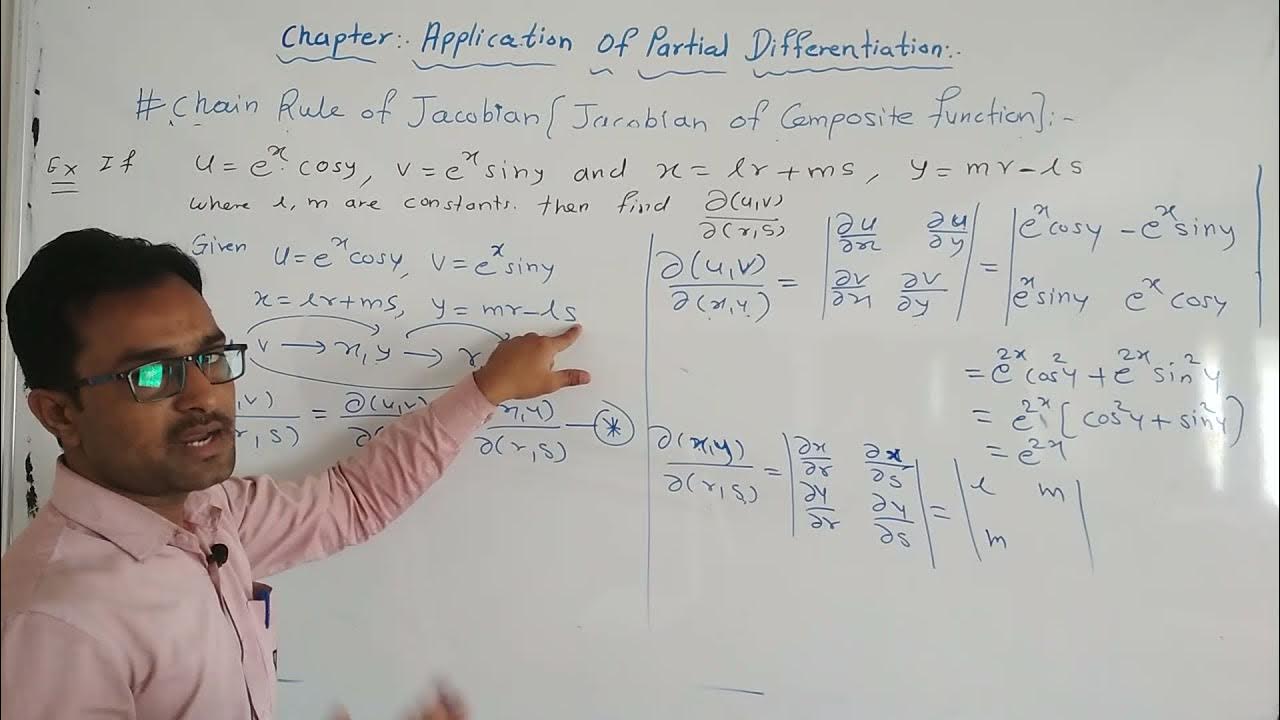 Chapter:. Application Of Partial Differentiation:.
# Chain Rule of Jacobian [Jacobian of Composite function]:-
Ex If u = e^x cosy, v = e^x siny and x = lr + ms, y = mr - ls
where l, m are constants. then find ∂(u,v)/∂(r,s)
Given u = e^x cosy, v = e^x siny
x = lr + ms, y = mr - ls
v → x, y → r
,v)/r,s) = ∂(u,v)/∂( x,y)/∂(r,s) — *
∂(u,v)/∂(x,y) = | ∂u/∂x ∂u/∂y ; ∂v/∂x ∂v/∂y | = | e^x cosy - e^x siny ; e^x siny e^x cosy |
= e^2x cos^2 y + e^2x sin^2 y
= e^2x [cos^2 y + sin^2 y]
= e^2x
∂(x,y)/∂(r,s) = | ∂x/∂r ∂x/∂s ; ∂y/∂r ∂y/∂s | = | l m ; m |